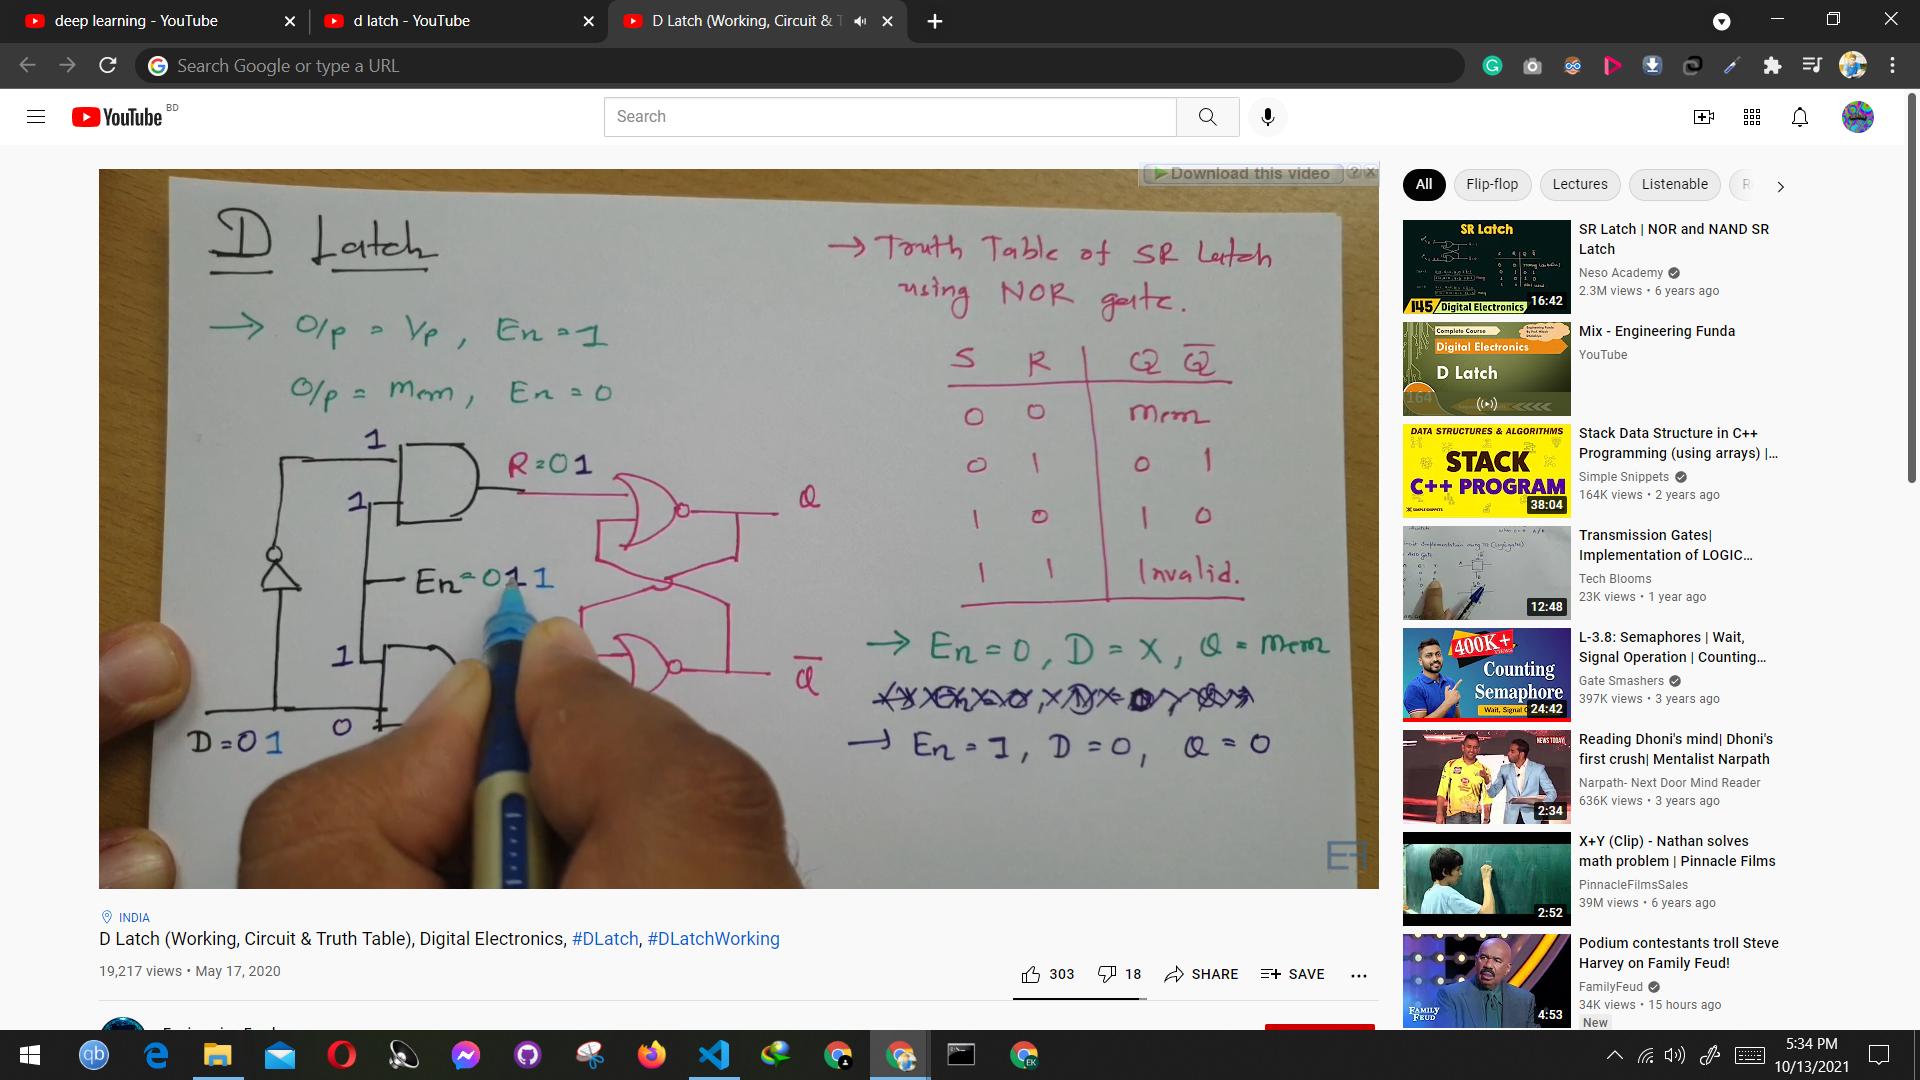 deep learning - YouTube
d latch - YouTube
D Latch (Working, Circuit &
Search Google or type a URL
YouTube BD
Search
Download this video ? x
D Latch
→ O/p = I/p, En = 1
O/p = Mem, En = 0
1
R = 0 1
1
En = 0 1 1
1
0
D = 0 1
Q
Q̅
→ Truth Table of SR Latch
using NOR gate.
S R Q Q̅
0 0 Mem
0 1 0 1
1 0 1 0
1 1 Invalid.
→ En = 0, D = X, Q = Mem
→ En = 1, D = 0, Q = 0
EF
INDIA
D Latch (Working, Circuit & Truth Table), Digital Electronics, #DLatch, #DLatchWorking
19,217 views • May 17, 2020
303 18 SHARE SAVE ...
All Flip-flop Lectures Listenable
SR Latch
145 Digital Electronics
16:42
SR Latch | NOR and NAND SR
Latch
Neso Academy
2.3M views • 6 years ago
Complete Course
Digital Electronics
D Latch
164
Mix - Engineering Funda
YouTube
DATA STRUCTURES & ALGORITHMS
STACK
C++ PROGRAM
38:04
Stack Data Structure in C++
Programming (using arrays) |...
Simple Snippets
164K views • 2 years ago
12:48
Transmission Gates|
Implementation of LOGIC...
Tech Blooms
23K views • 1 year ago
400K+
Counting
Semaphore
Wait, Signal
24:42
L-3.8: Semaphores | Wait,
Signal Operation | Counting...
Gate Smashers
397K views • 3 years ago
NEWS TODAY
2:34
Reading Dhoni's mind| Dhoni's
first crush| Mentalist Narpath
Narpath- Next Door Mind Reader
636K views • 3 years ago
2:52
X+Y (Clip) - Nathan solves
math problem | Pinnacle Films
PinnacleFilmsSales
39M views • 6 years ago
FAMILY
FEUD
4:53
Podium contestants troll Steve
Harvey on Family Feud!
FamilyFeud
34K views • 15 hours ago
New
qb
EK
5:34 PM
10/13/2021